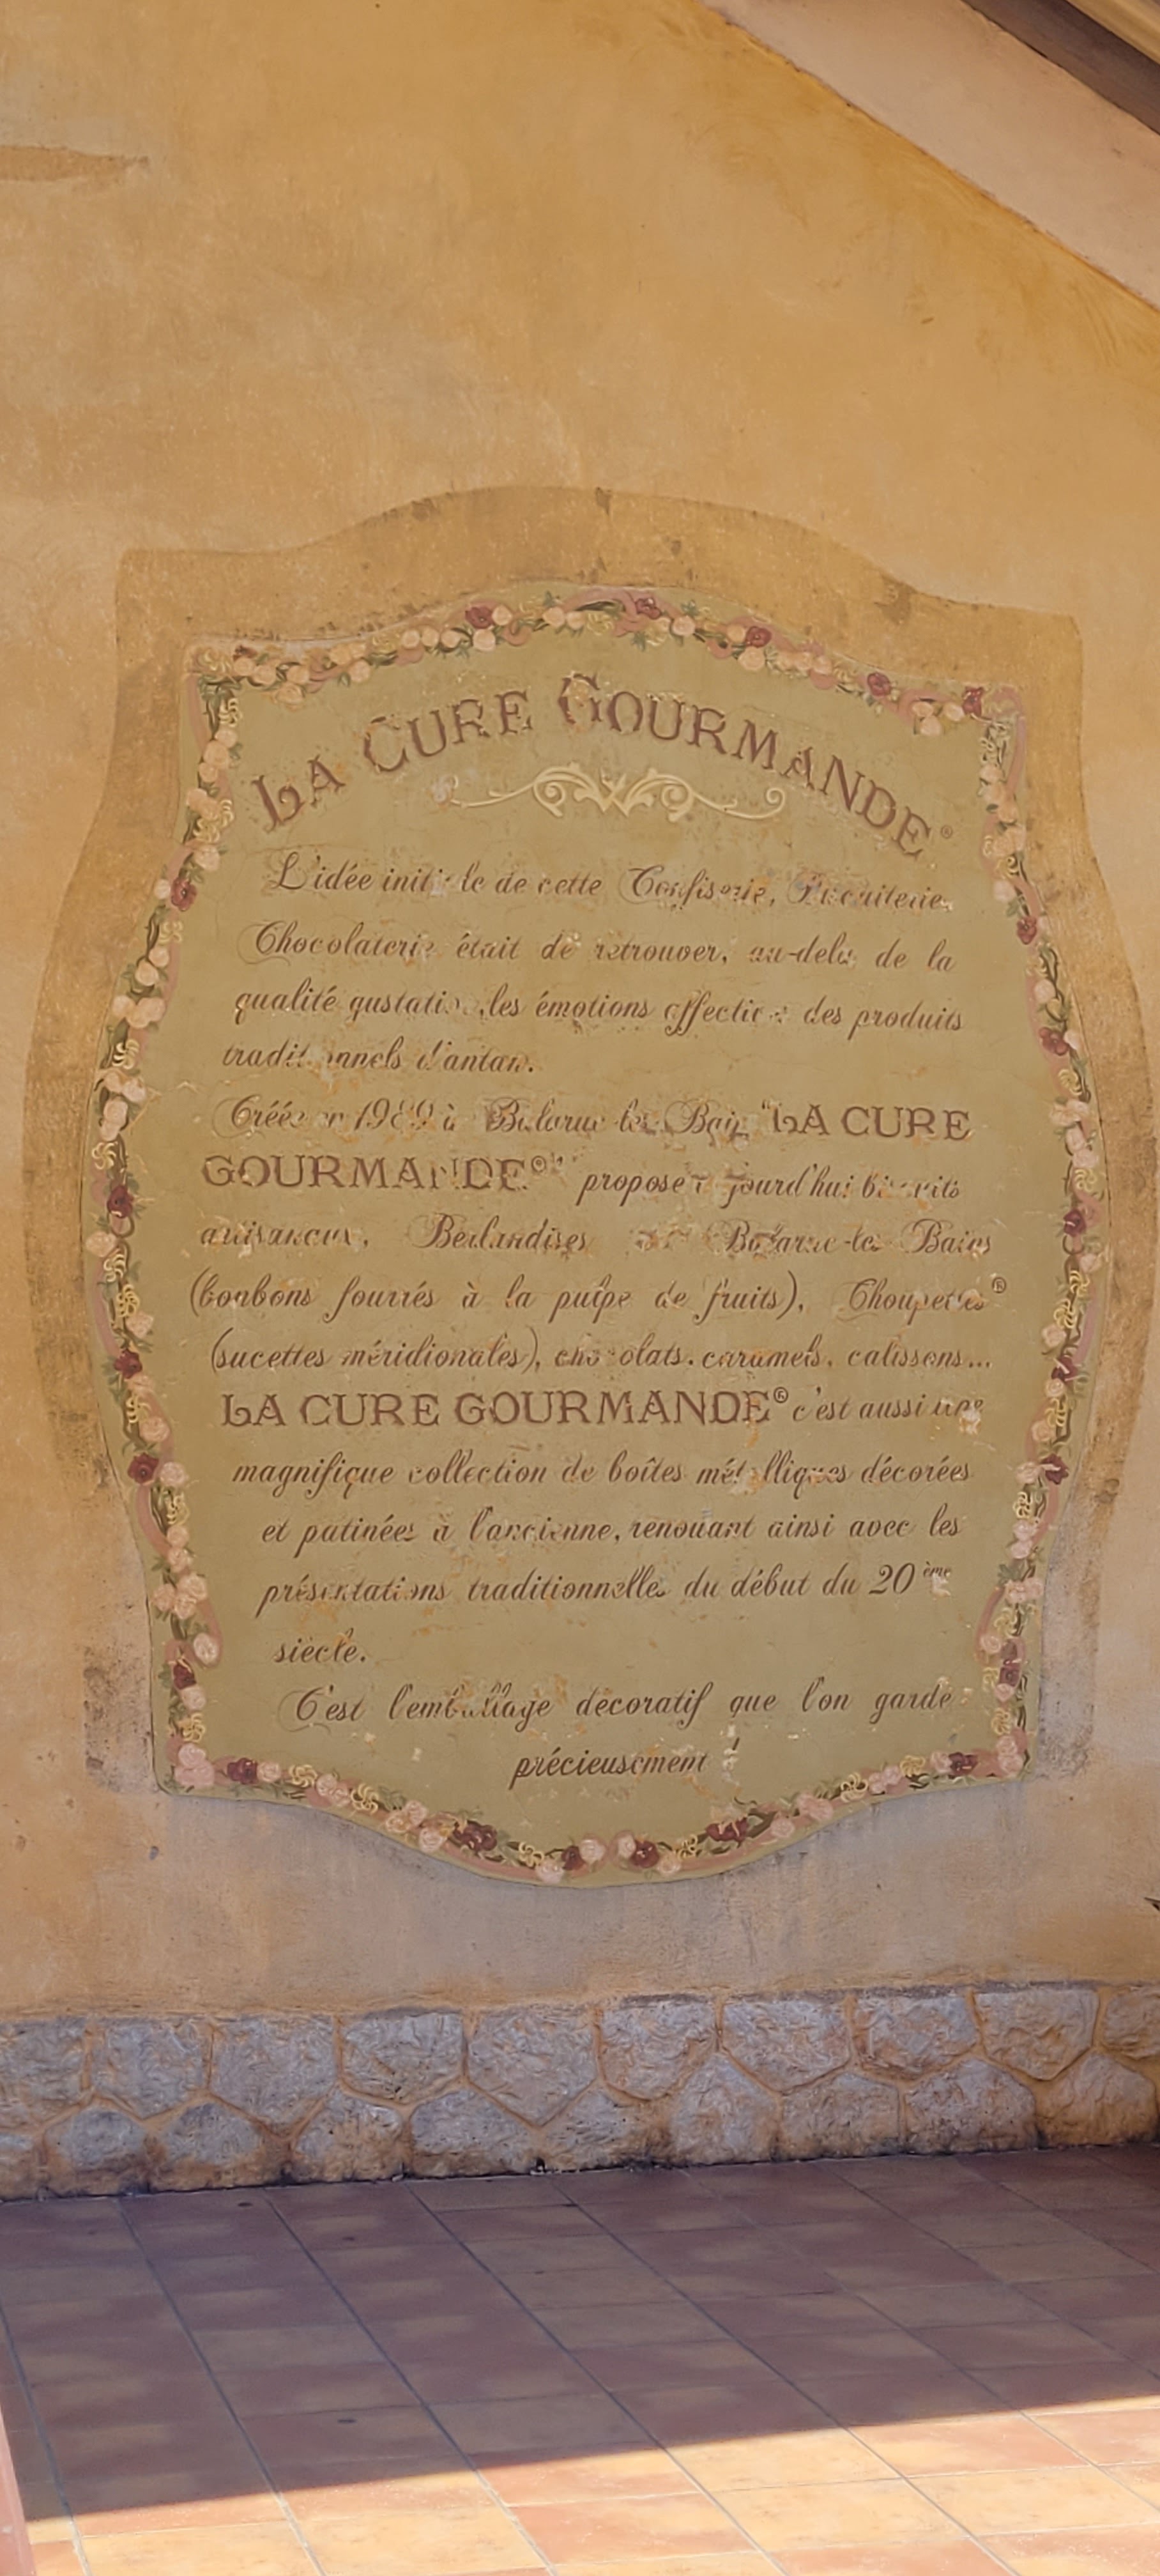 LA CURE GOURMANDE®
L'idée initiale de cette Confiserie, Biscuiterie,
Chocolaterie était de retrouver, au-delà de la
qualité gustative, les émotions affectives des produits
traditionnels d'antan.
Créée en 1989 à Balaruc-les-Bains "LA CURE
GOURMANDE®" propose aujourd'hui biscuits
Berlandises de Balaruc-les-Bains
(bonbons fourrés à la pulpe de fruits), Choupettes®
(sucettes méridionales), chocolats, caramels, calissons...
LA CURE GOURMANDE® c'est aussi une
magnifique collection de boîtes métalliques décorées
et patinées à l'ancienne, renouant ainsi avec les
présentations traditionnelles du début du 20ème
siècle.
C'est l'emballage décoratif que l'on garde
précieusement !